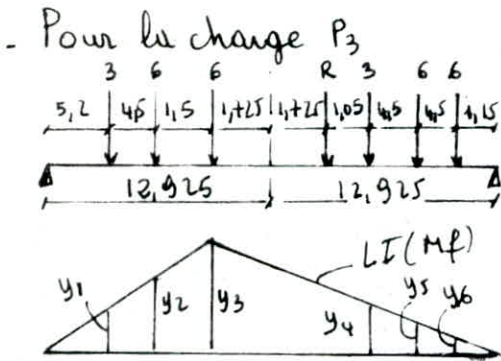 - Pour la charge P3
3 6 6 R 3 6 6
5,2 4,5 1,5 1,725 1,725 1,05 4,5 1,5 4,15
12,925 12,925
LI(Mf)
y1 y2 y3 y4 y5 y6